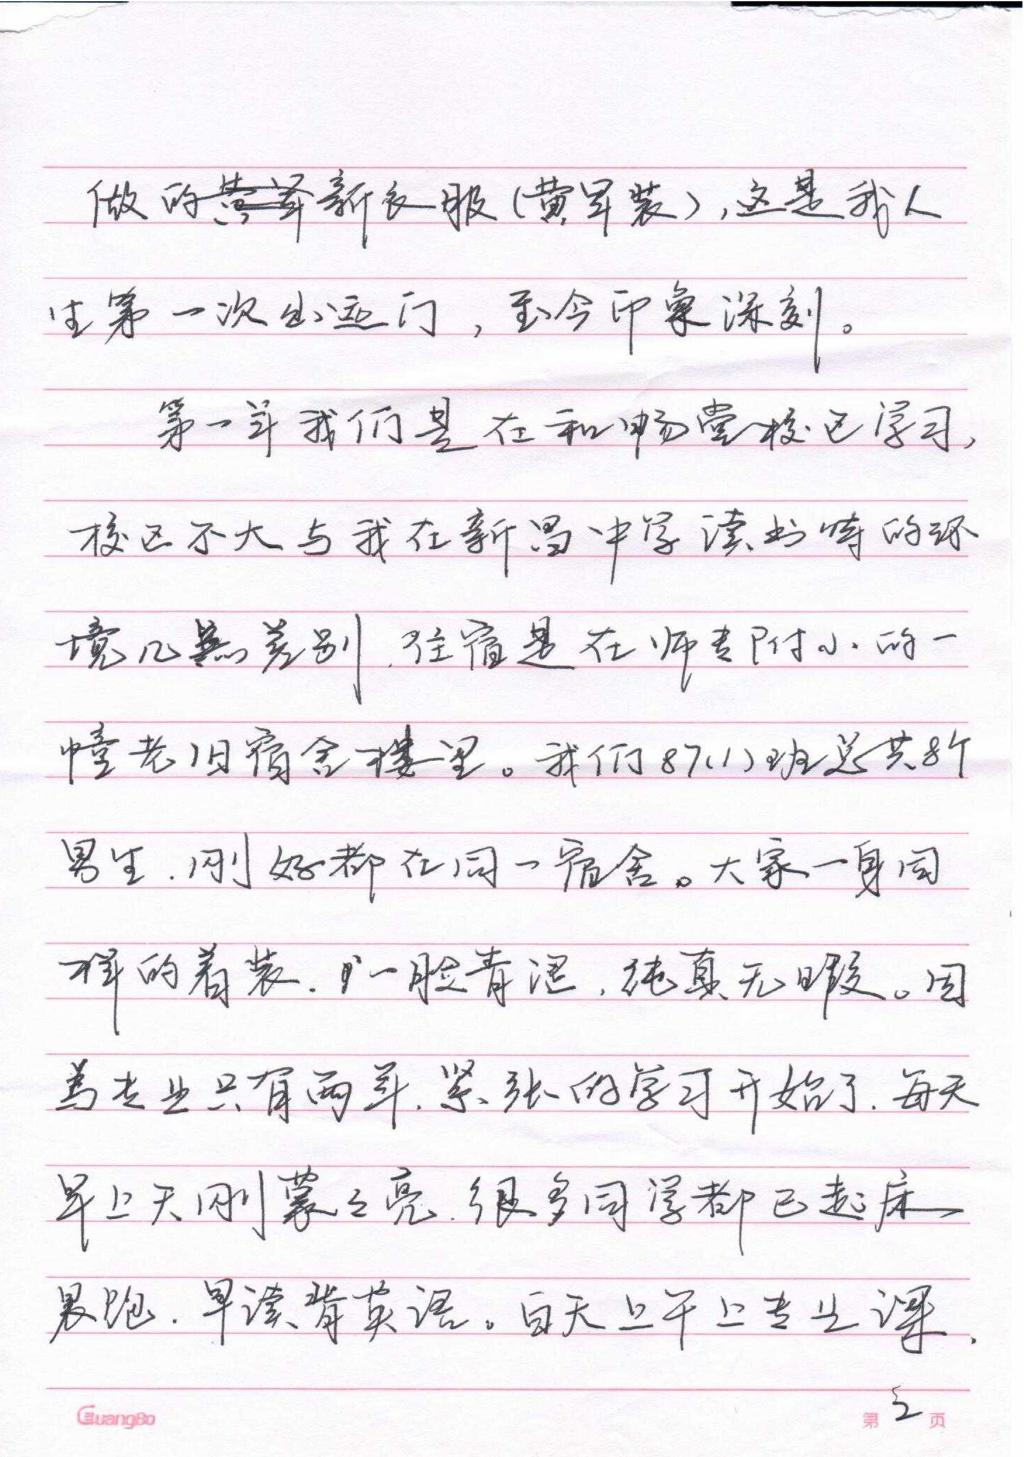 做的新衣服(黄军装),这是我人
生第一次出远门,至今印象深刻。
第一年我们是在和畅堂校区学习,
校区不大与我在新昌中学读书时的环
境几无差别,住宿是在师专附小的一
幢老旧宿舍楼里。我们87(1)班总共8个
男生,刚好都在同一宿舍。大家一身同
样的着装,一脸青涩,纯真无暇。因
为专业只有两年,紧张的学习开始了,每天
早上天刚蒙蒙亮,很多同学都已起床
晨跑,早读背英语。白天上午上专业课,
GuangBo
第 2 页